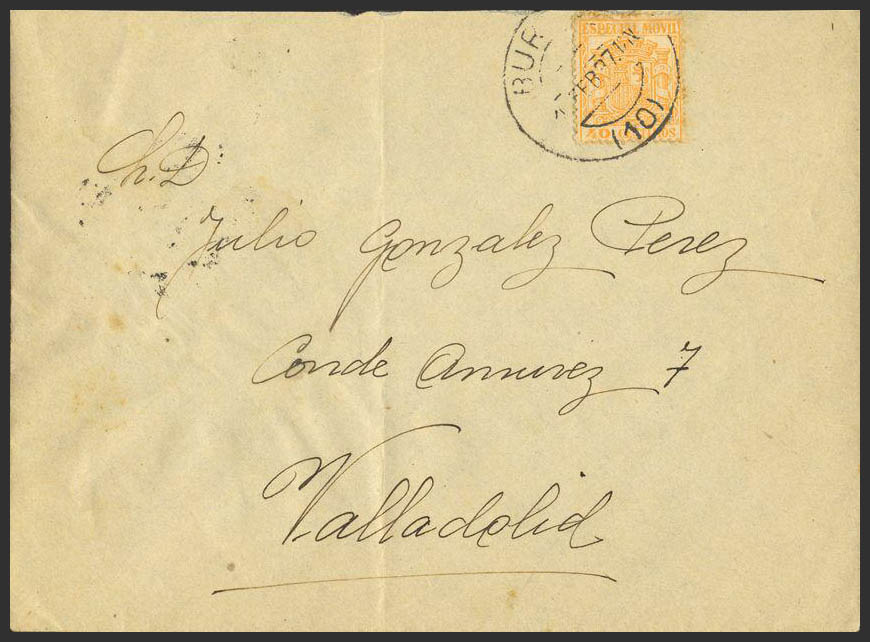 ESPECIAL MOVIL
BUR
FEB 37
(10)
Sr. D
Julio Gonzalez Perez
Conde Annurez 7
Valladolid